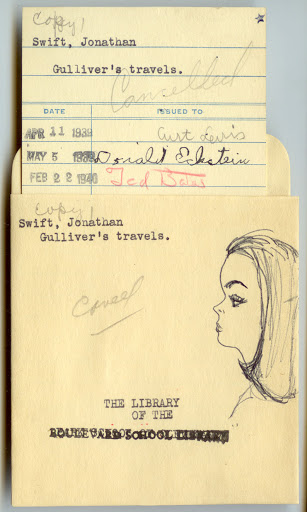 Copy 1
Swift, Jonathan
Gulliver's travels.
Cancelled
DATE ISSUED TO
APR 11 1939 Curt Lewis
MAY 5 1939 Donald Eckstein
FEB 22 1940 Ted
Copy 1
Swift, Jonathan
Gulliver's travels.
THE LIBRARY
OF THE
BOULEVARD SCHOOL LIBRARY